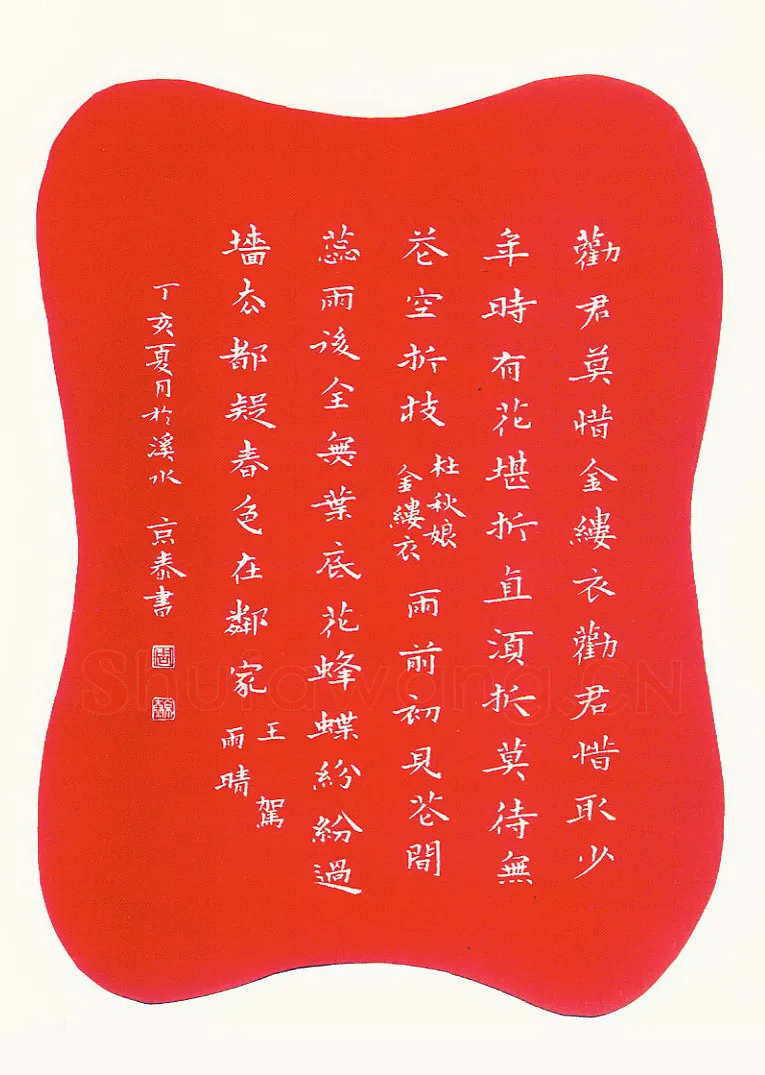 勸君莫惜金縷衣勸君惜取少
年時有花堪折直須折莫待無
花空折枝
杜秋娘
金縷衣
雨前初見花間
蕊雨後全無葉底花蜂蝶紛紛過
墻去都疑春色在鄰家
王駕
雨晴
丁亥夏月於溪水 京泰書
Shufawang.CN